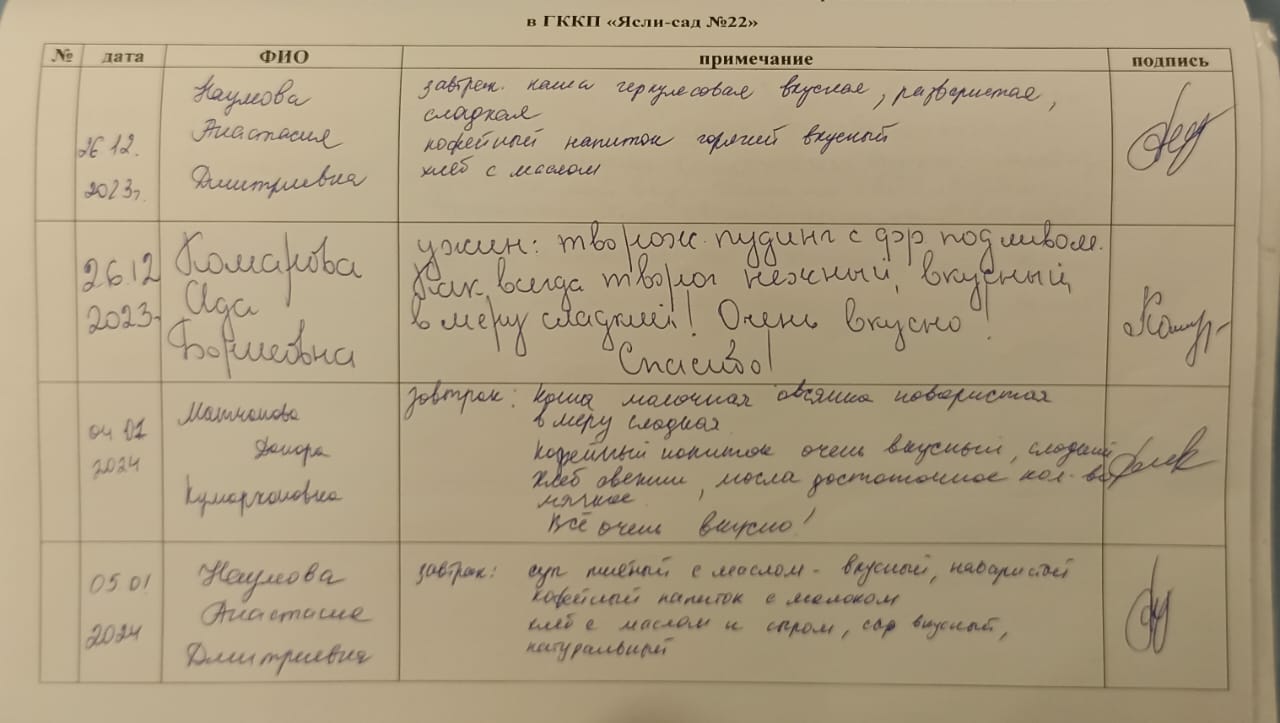 в ГККП «Ясли-сад №22»
№ дата ФИО примечание подпись
26.12. 2023г.
Наумова
Анастасия
Дмитриевна
завтрак. каша геркулесовая вкусная, разваристая,
сладкая
кофейный напиток горячий вкусный
хлеб с маслом
26.12 2023г
Комарова
Ида
Борисовна
ужин: творож. пудинг с фр подливом.
Как всегда творог нежный, вкусный,
в меру сладкий! Очень вкусно!
Спасибо!
Комар
04 01 2024
Динора
завтрак: каша молочная овсянка наваристая
в меру сладкая
кофейный напиток очень вкусный, сладкий
хлеб свежий, масла достаточное кол-во
мягкое
Всё очень вкусно!
05.01 2024
Наумова
Анастасия
Дмитриевна
завтрак: суп пшеный с маслом - вкусный, наваристый
кофейный напиток с молоком
хлеб с маслом и сыром, сыр вкусный,
натуральный